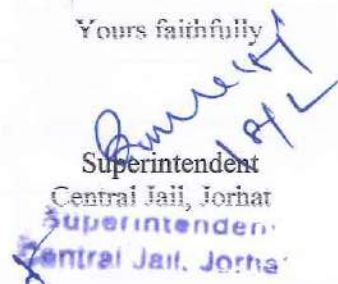 Yours faithfully
Superintendent
Central Jail, Jorhat
Superinten
entral Jail, Jorha